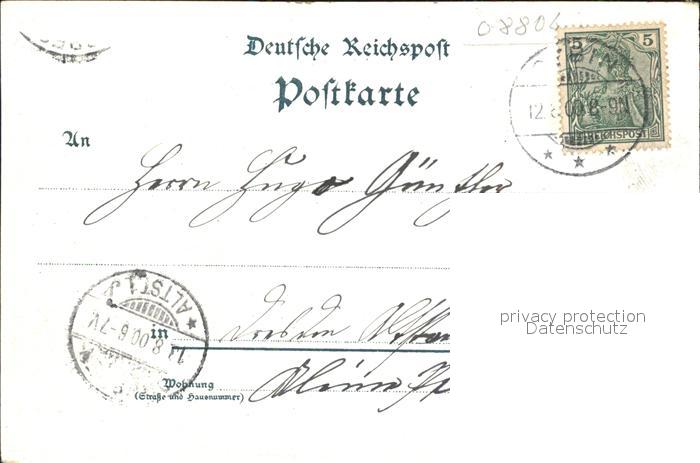 08804
Deutsche Reichspost
Postkarte
5 5
REICHSPOST
12.8.00.8-9N
An
Herrn Hugo Günther
ALTST. 1
13.8.00.6-7V
in Dresden Altstadt
Wohnung
(Straße und Hausnummer)
privacy protection
Datenschutz